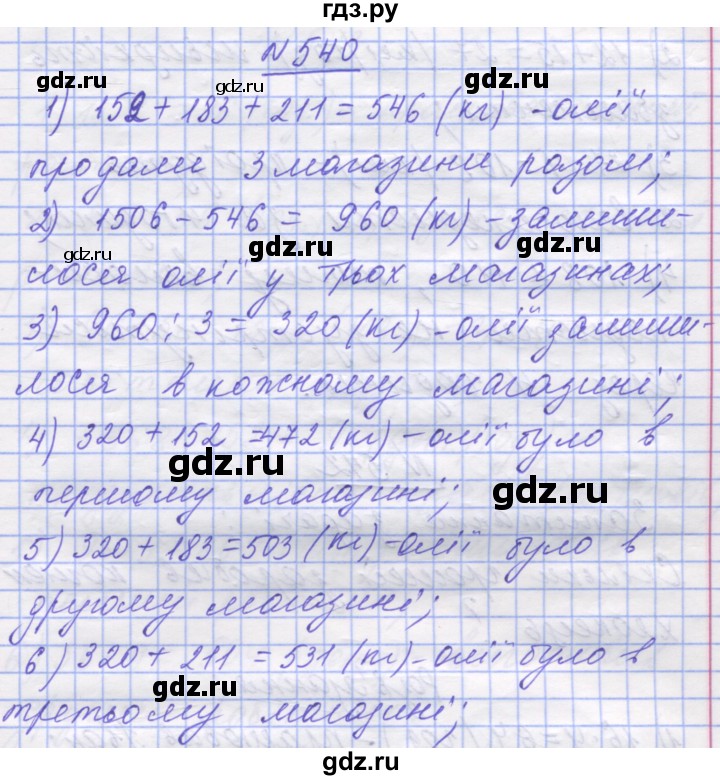 гдз.ру
N540
gdz.ru gdz.ru
1) 152 + 183 + 211 = 546 (кг) - олії
продали 3 магазини разом;
gdz.ru gdz.ru
2) 1506 - 546 = 960 (кг) - залиши-
gdz.ru gdz.ru
лося олії у трьох магазинах;
3) 960 : 3 = 320 (кг) - олії залиши-
gdz.ru gdz.ru
лося в кожному магазині;
4) 320 + 152 = 472 (кг) - олії було в
gdz.ru gdz.ru
першому магазині;
5) 320 + 183 = 503 (кг) - олії було в
gdz.ru gdz.ru
другому магазині;
6) 320 + 211 = 531 (кг) - олії було в
gdz.ru gdz.ru
третьому магазині;
gdz.ru